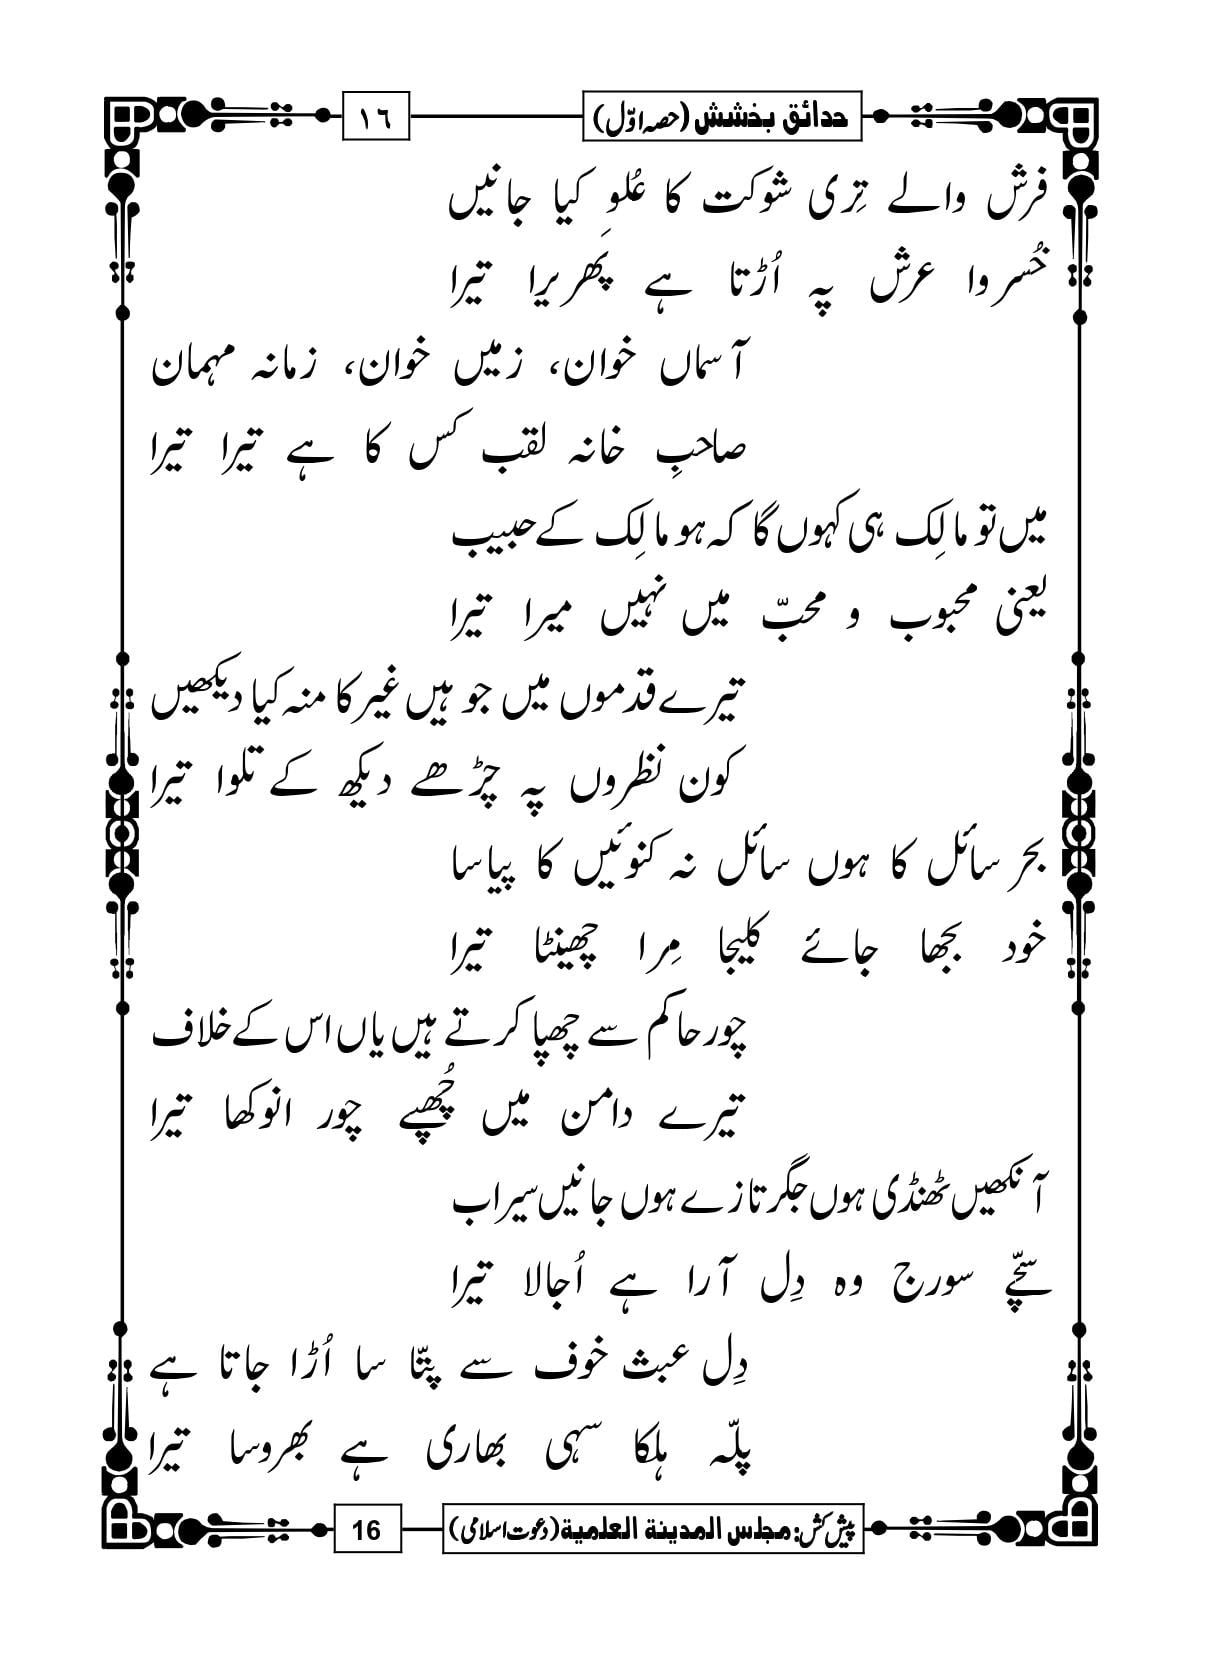 حدائق بخشش (حصہ اوّل)
١٦
فرش والے تِری شوکت کا عُلوِ کیا جانیں
خُسروا عرش پہ اُڑتا ہے پَھریرا تیرا
آسماں خوان، زمیں خوان، زمانہ مہمان
صاحبِ خانہ لقب کس کا ہے تیرا تیرا
میں تو مالِک ہی کہوں گا کہ ہو مالِک کے حبیب
یعنی محبوب و محبّ میں نہیں میرا تیرا
تیرے قدموں میں جو ہیں غیر کا منہ کیا دیکھیں
کون نظروں پہ چڑھے دیکھ کے تلوا تیرا
بحر سائل کا ہوں سائل نہ کنوئیں کا پیاسا
خود بجھا جائے کلیجا مِرا چھینٹا تیرا
چور حاکم سے چھپا کرتے ہیں یاں اس کے خلاف
تیرے دامن میں چُھپے چور انوکھا تیرا
آنکھیں ٹھنڈی ہوں جگر تازے ہوں جانیں سیراب
سچّے سورج وہ دِل آرا ہے اُجالا تیرا
دِل عبث خوف سے پتّا سا اُڑا جاتا ہے
پلّہ ہلکا سہی بھاری ہے بھروسا تیرا
پیش کش: مجلس المدینة العلمیة (دعوت اسلامی)
16